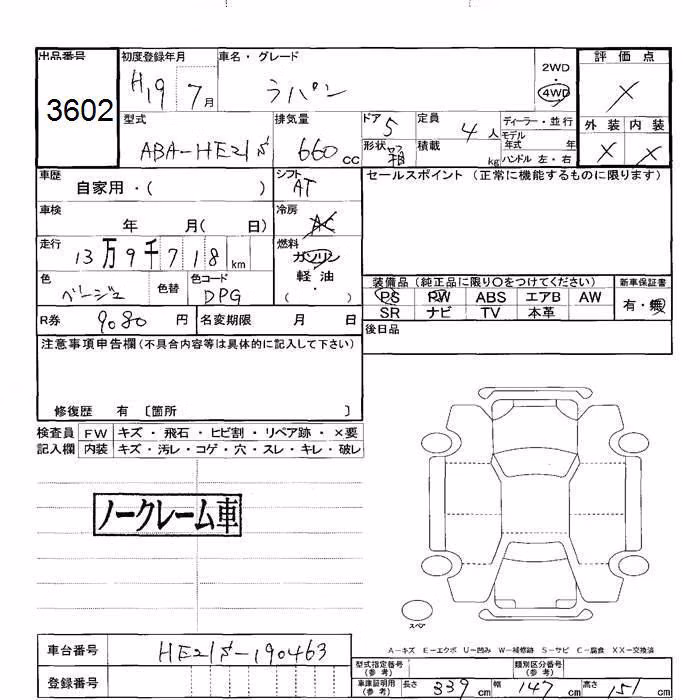 出品番号 初度登録年月 車名・グレード 評価点
3602 H19 7月 ラパン 2WD・4WD X
外装 内装
X X
型式 排気量 ドア 定員 ディーラー・並行
ABA-HE21S 660cc 5 4人 モデル年式 年
形状 箱 積載 kg ハンドル 左・右
車歴 シフト セールスポイント (正常に機能するものに限ります)
自家用・( ) AT
車検 冷房
年 月( 日) AC
走行 燃料
13万9千718km ガソリン
軽油
・( )
色 色替 色コード
ベージュ DPG
装備品 (純正品に限り○をつけてください) 新車保証書
PS PW ABS エアB AW 有・無
SR ナビ TV 本革
R券 9080円 名変期限 月 日
後日品
注意事項申告欄(不具合内容等は具体的に記入して下さい)
修復歴 有 〔箇所 〕
検査員 FW キズ・飛石・ヒビ割・リペア跡・×要
記入欄 内装 キズ・汚レ・コゲ・穴・スレ・キレ・破レ
ノークレーム車
スペア
A―キズ E―エクボ U―凹み W―補修跡 S―サビ C―腐食 XX―交換済
車台番号 HE21S-190463
型式指定番号(参考) 類別区分番号(参考)
登録番号
車庫証明用(参考) 長さ 339cm 幅 147cm 高さ 151cm